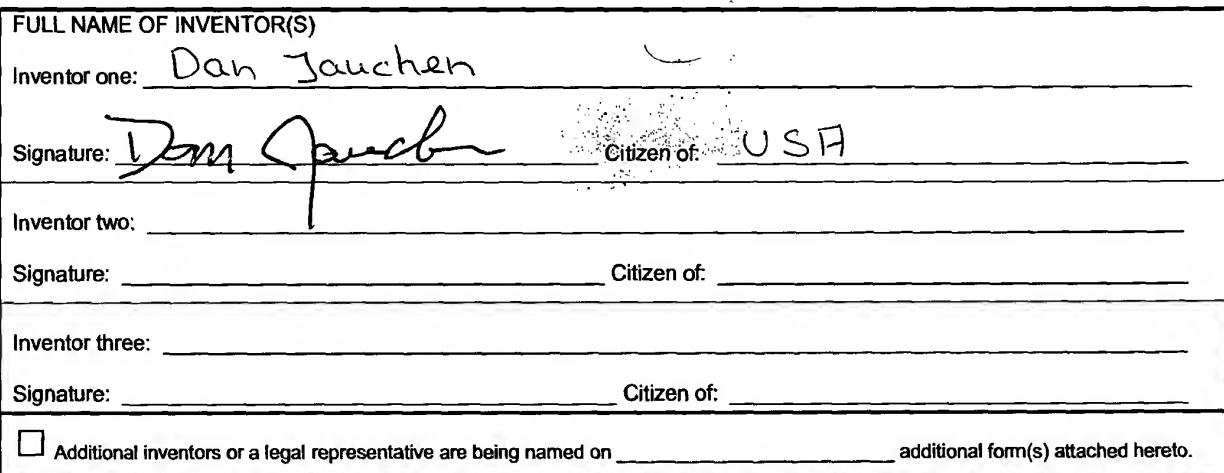 FULL NAME OF INVENTOR(S)
Inventor one: Dan Jauchen
Signature: Dan Jauchen Citizen of: USA
Inventor two:
Signature: Citizen of:
Inventor three:
Signature: Citizen of:
Additional inventors or a legal representative are being named on additional form(s) attached hereto.